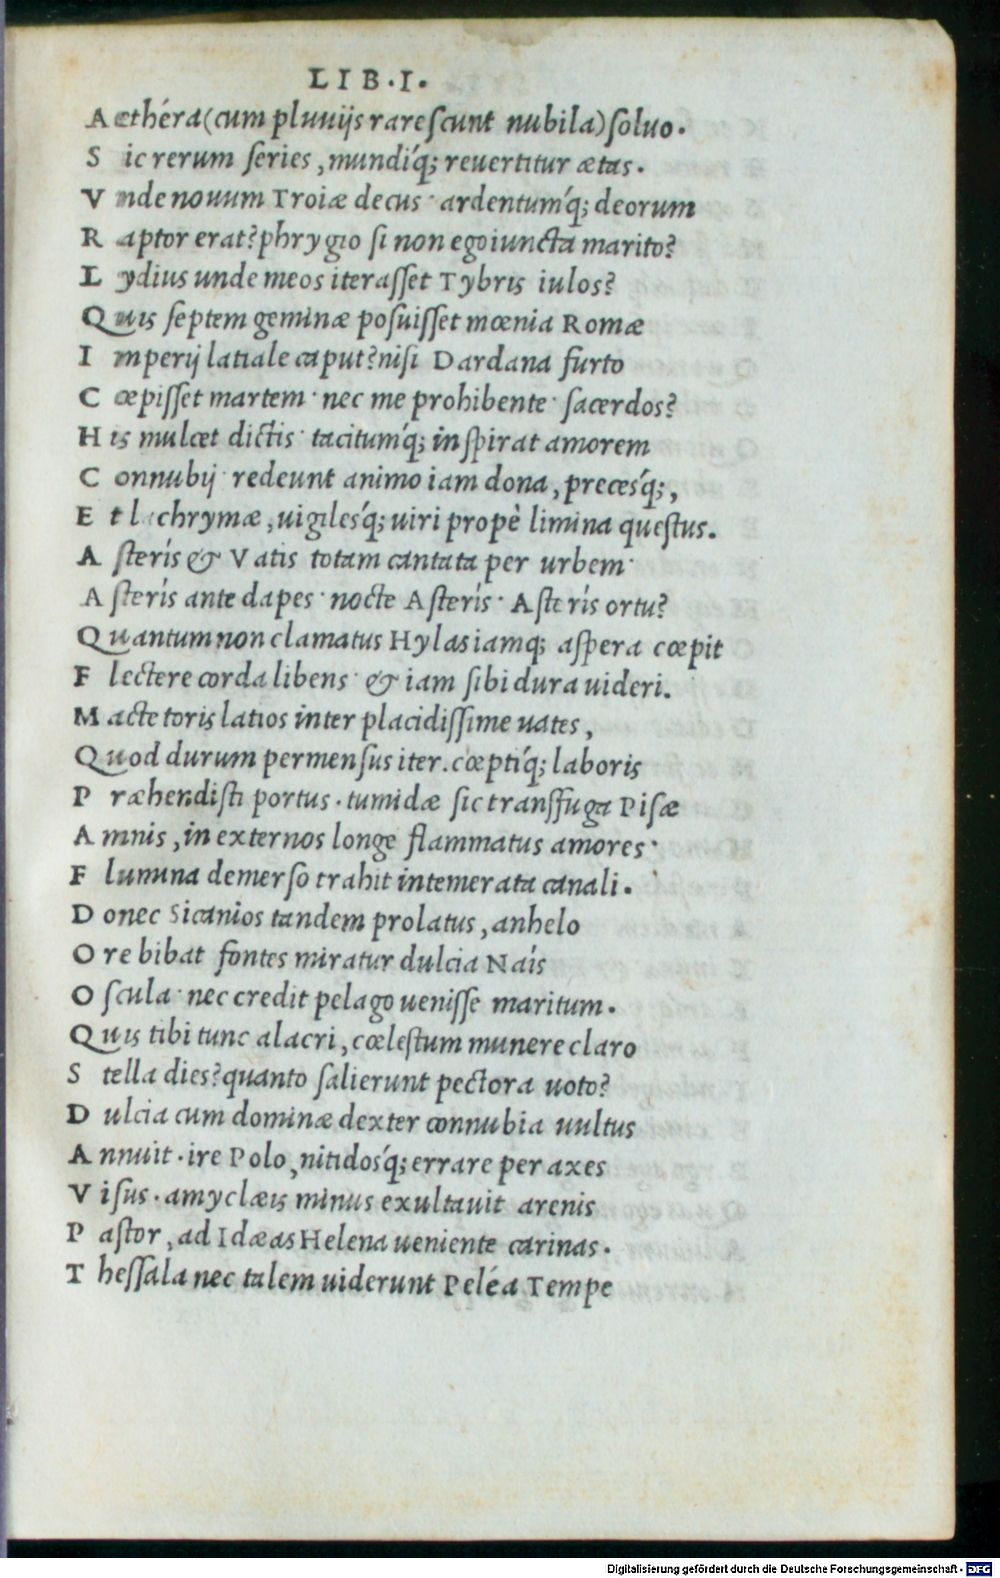 LIB.I.
Aethéra(cum pluuijs rarescunt nubila)soluo.
Sic rerum series, mundíq; reuertitur ætas.
Vnde nouum Troiæ decus· ardentumq́; deorum
Raptor erat? phrygio si non ego iuncta marito?
Lydius unde meos iterasset Tybris iulos?
Quis septem geminæ posuisset mœnia Romæ
Imperij latiale caput? nisi Dardana furto
Cœpisset martem· nec me prohibente· sacerdos?
His mulcet dictis· tacitumq́; inspirat amorem
Connubij· redeunt animo iam dona, precesq́;,
Et lachrymæ, uigilesq́; uiri propè limina questus.
Asterís & Vatis totam cantata per urbem·
Asterís ante dapes· nocte Asterís· Asterís ortu?
Quantum non clamatus Hylas iamq; aspera cœpit
Flectere corda libens· & iam sibi dura uideri.
Macte toris latios inter placidissime uates,
Quod durum permensus iter. cœptiq́; laboris
Præhendisti portus. tumidæ sic transfuga Pisæ
Amnis, in externos longe flammatus amores·
Flumina demerso trahit intemerata canali.
Donec Sicanios tandem prolatus, anhelo
Ore bibat fontes miratur dulcia Naís
Oscula· nec credit pelago uenisse maritum.
Quis tibi tunc alacri, cœlestum munere claro
Stella dies? quanto salierunt pectora uoto?
Dulcia cum dominæ dexter connubia uultus
Annuit. ire Polo, nitidosq́; errare per axes
Visus. amyclæis minus exultauit arenis
Pastor, ad Idæas Helena ueniente carinas.
Thessala nec talem uiderunt Peléa Tempe
Digitalisierung gefördert durch die Deutsche Forschungsgemeinschaft - DFG